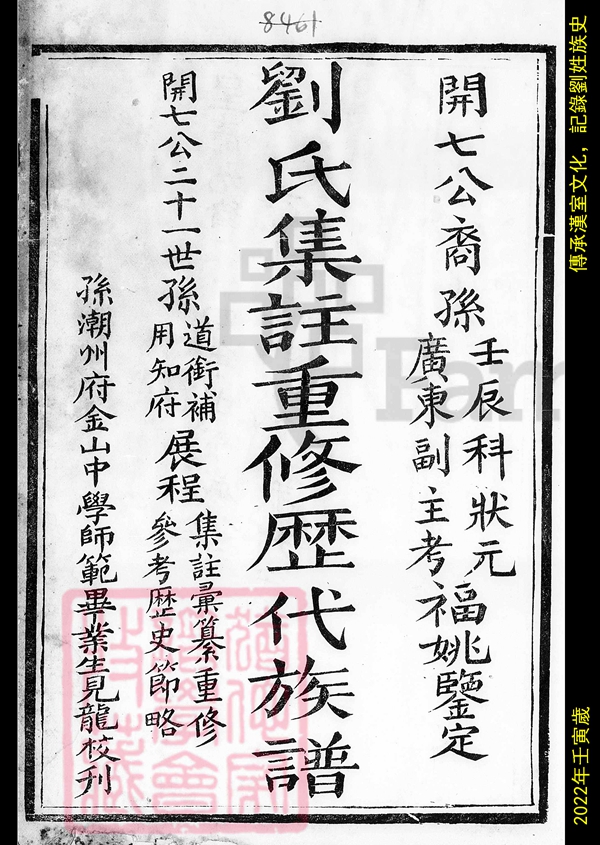 8461
開七公裔孫
壬辰科狀元
廣東副主考
福姚鑒定
劉氏集註重修歷代族譜
開七公二十一世孫
道銜補
用知府
展程
集註彙纂重修
參考歷史節略
孫潮州府金山中學師範畢業生見龍校刊
傳承漢室文化，記錄劉姓族史
2022年壬寅歲